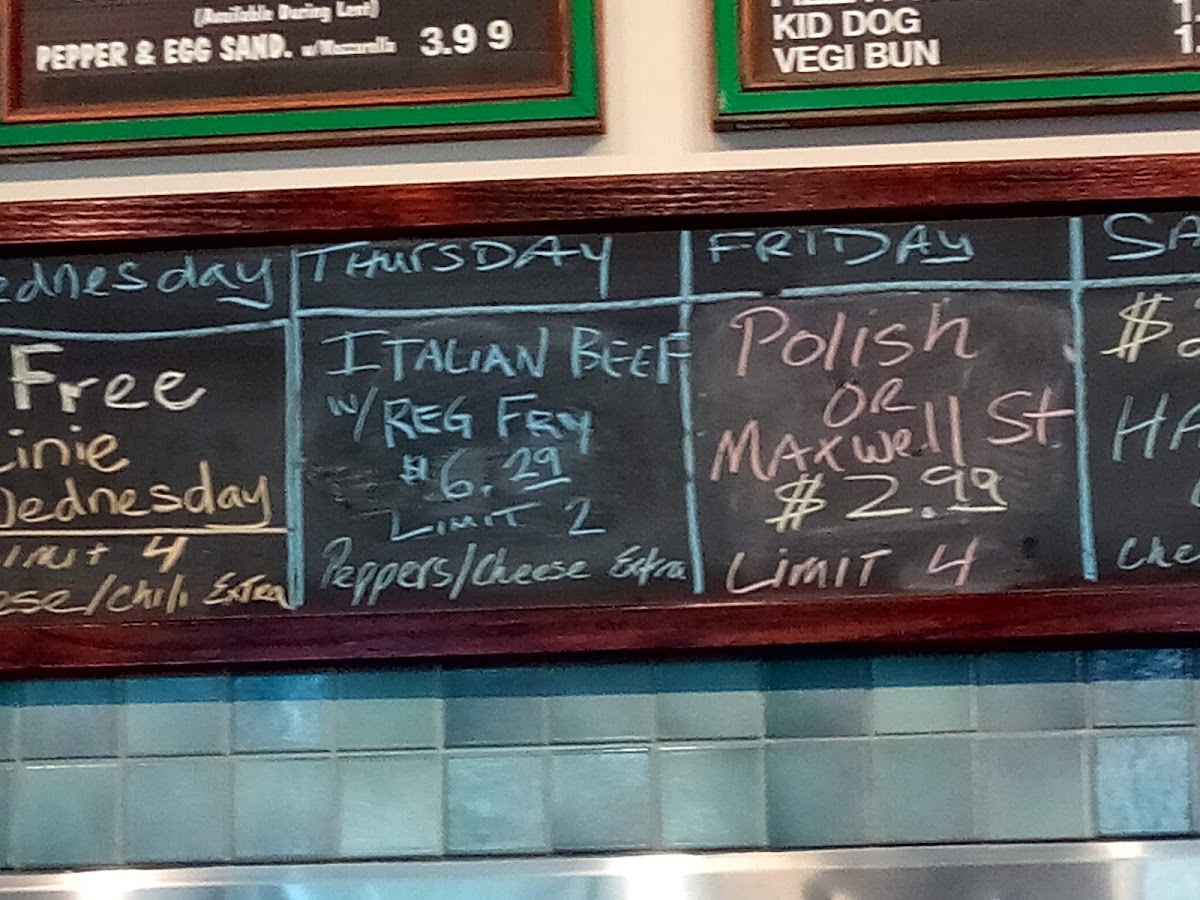 (Available During Lent)
PEPPER & EGG SAND. w/Mozzarella 3.99
KID DOG
VEGI BUN
ednesday
Free
inie
Wednesday
imit 4
ese/chili Extra
THURSDAY
ITALIAN BEEF
W/ REG FRY
$6.29
LIMIT 2
Peppers/Cheese Extra
FRIDAY
Polish
OR
Maxwell St.
$2.99
LIMIT 4
SA
$
HA
Che